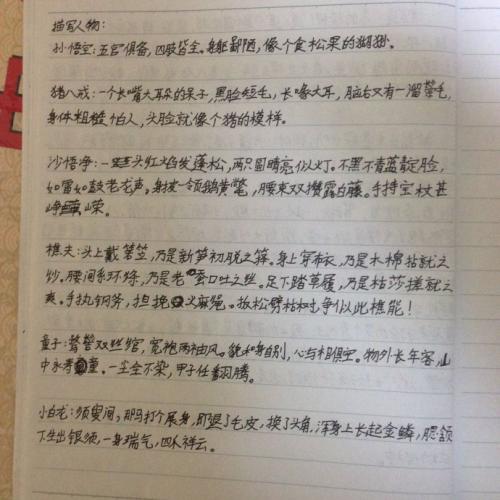 描写人物:
孙悟空:五官俱备,四肢皆全。身躯鄙陋,像个食松果的猢狲。
猪八戒:一个长嘴大耳朵的呆子,黑脸短毛,长喙大耳,脑后又有一溜鬃毛,
身体粗糙怕人,头脸就像个猪的模样。
沙悟净:一头红焰发蓬松,两只圆睛亮似灯。不黑不青蓝靛脸,
如雷如鼓老龙声。身披一领鹅黄氅,腰束双攒露白藤。手持宝杖甚
峥嵘。
樵夫:头上戴箬笠,乃是新笋初脱之箨。身上穿布衣,乃是木棉拈就之
纱。腰间系环绦,乃是老蚕口吐之丝。足下踏草履,乃是枯莎搓就之
爽。手执钢斧,担挽火麻绳。扳松劈枯树,争似此樵能!
童子:髽髻双丝绾,宽袍两袖风。貌和身自别,心与相俱空。物外长年客,山
中永寿童。一尘全不染,甲子任翻腾。
小白龙:须臾间,那马打个展身,即退了毛皮,换了头角,浑身上长起金鳞,腮颔
下生出银须,一身瑞气,四爪祥云。